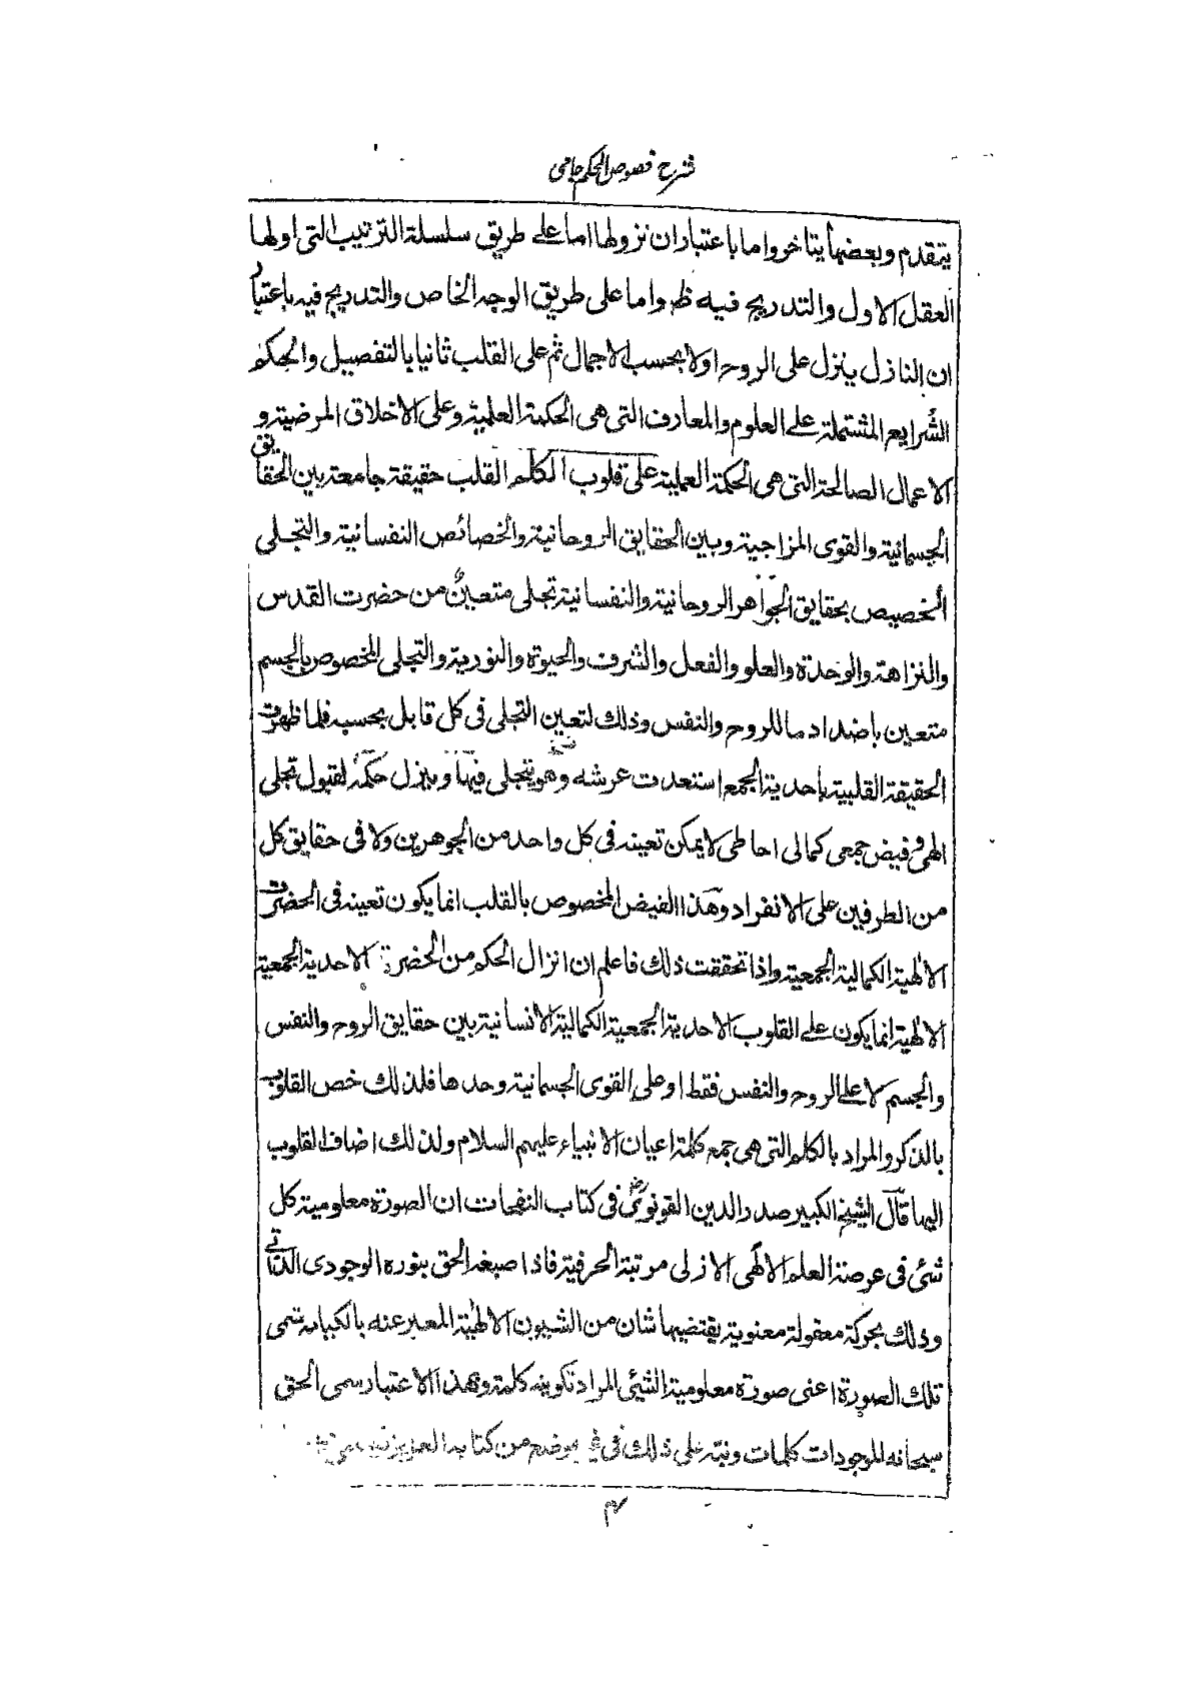 شرح فصوص الحكم جامی
يتقدم وبعضها يتاخر واما باعتبار ان نزولها اما على طريق سلسلة الترتيب التى اولها
العقل الاول والتدريج فيه ظ واما على طريق الوجه الخاص والتدريج فيه باعتبار
ان النازل ينزل على الروح اولا بحسب الاجمال ثم على القلب ثانيا بالتفصيل والحكم
الشرايع المشتملة على العلوم والمعارف التى هى الحكمة العلمية وعلى الاخلاق المرضية و
الاعمال الصالحة التى هى الحكمة العملية على قلوب الكلم القلب حقيقة جامعة بين الحقايق
الجسمانية والقوى المزاجية وبين الحقايق الروحانية والخصائص النفسانية والتجلى
الخصيص بحقايق الجواهر الروحانية والنفسانية تجلى متعين من حضرت القدس
والنزاهة والوحدة والعلو والفعل والشرف والحيوة والنورية والتجلى المخصوص بالجسم
متعين باضداد ما للروح والنفس وذلك لتعين التجلى فى كل قابل بحسبه فلما ظهرت
الحقيقة القلبية باحدية الجمع استعدت عرشه وهو يتجلى فيها وينزل حكمه لقبول تجلى
الهى وفيض جمعى كمالى احاطى لا يمكن تعينه فى كل واحد من الجوهرين ولا فى حقايق كل
من الطرفين على الانفراد وهذا الفيض المخصوص بالقلب انما يكون تعينه فى الحضرت
الالهية الكمالية الجمعية واذا تحققت ذلك فاعلم ان انزال الحكم من الحضرة الاحدية الجمعية
الالهية انما يكون على القلوب الاحدية الجمعية الكمالية الانسانية بين حقايق الروح والنفس
والجسم لا على الروح والنفس فقط او على القوى الجسمانية وحدها فلذلك خص القلوب
بالذكر والمراد بالكلم التى هى جمع كلمة اعيان الانبياء عليهم السلام ولذلك اضاف القلوب
اليها قال الشيخ الكبير صدر الدين القونوى رض فى كتاب النفحات ان الصورة معلومية كل
شئ فى عرصة العلم الالهى الازلى مرتبة الحرفية فاذا صبغه الحق بنوره الوجودى الذاتے
وذلك بحركة معقولة معنوية يقتضيها شان من الشيون الالهية المعبر عنه بالكتابة تسمى
تلك الصورة اعنى صورة معلومية الشئى المراد تكوينه كلمة وبهذا الاعتبار سمى الحق
سبحانه الموجودات كلمات ونبه على ذلك فى غير موضع من كتابه العزيز
۴